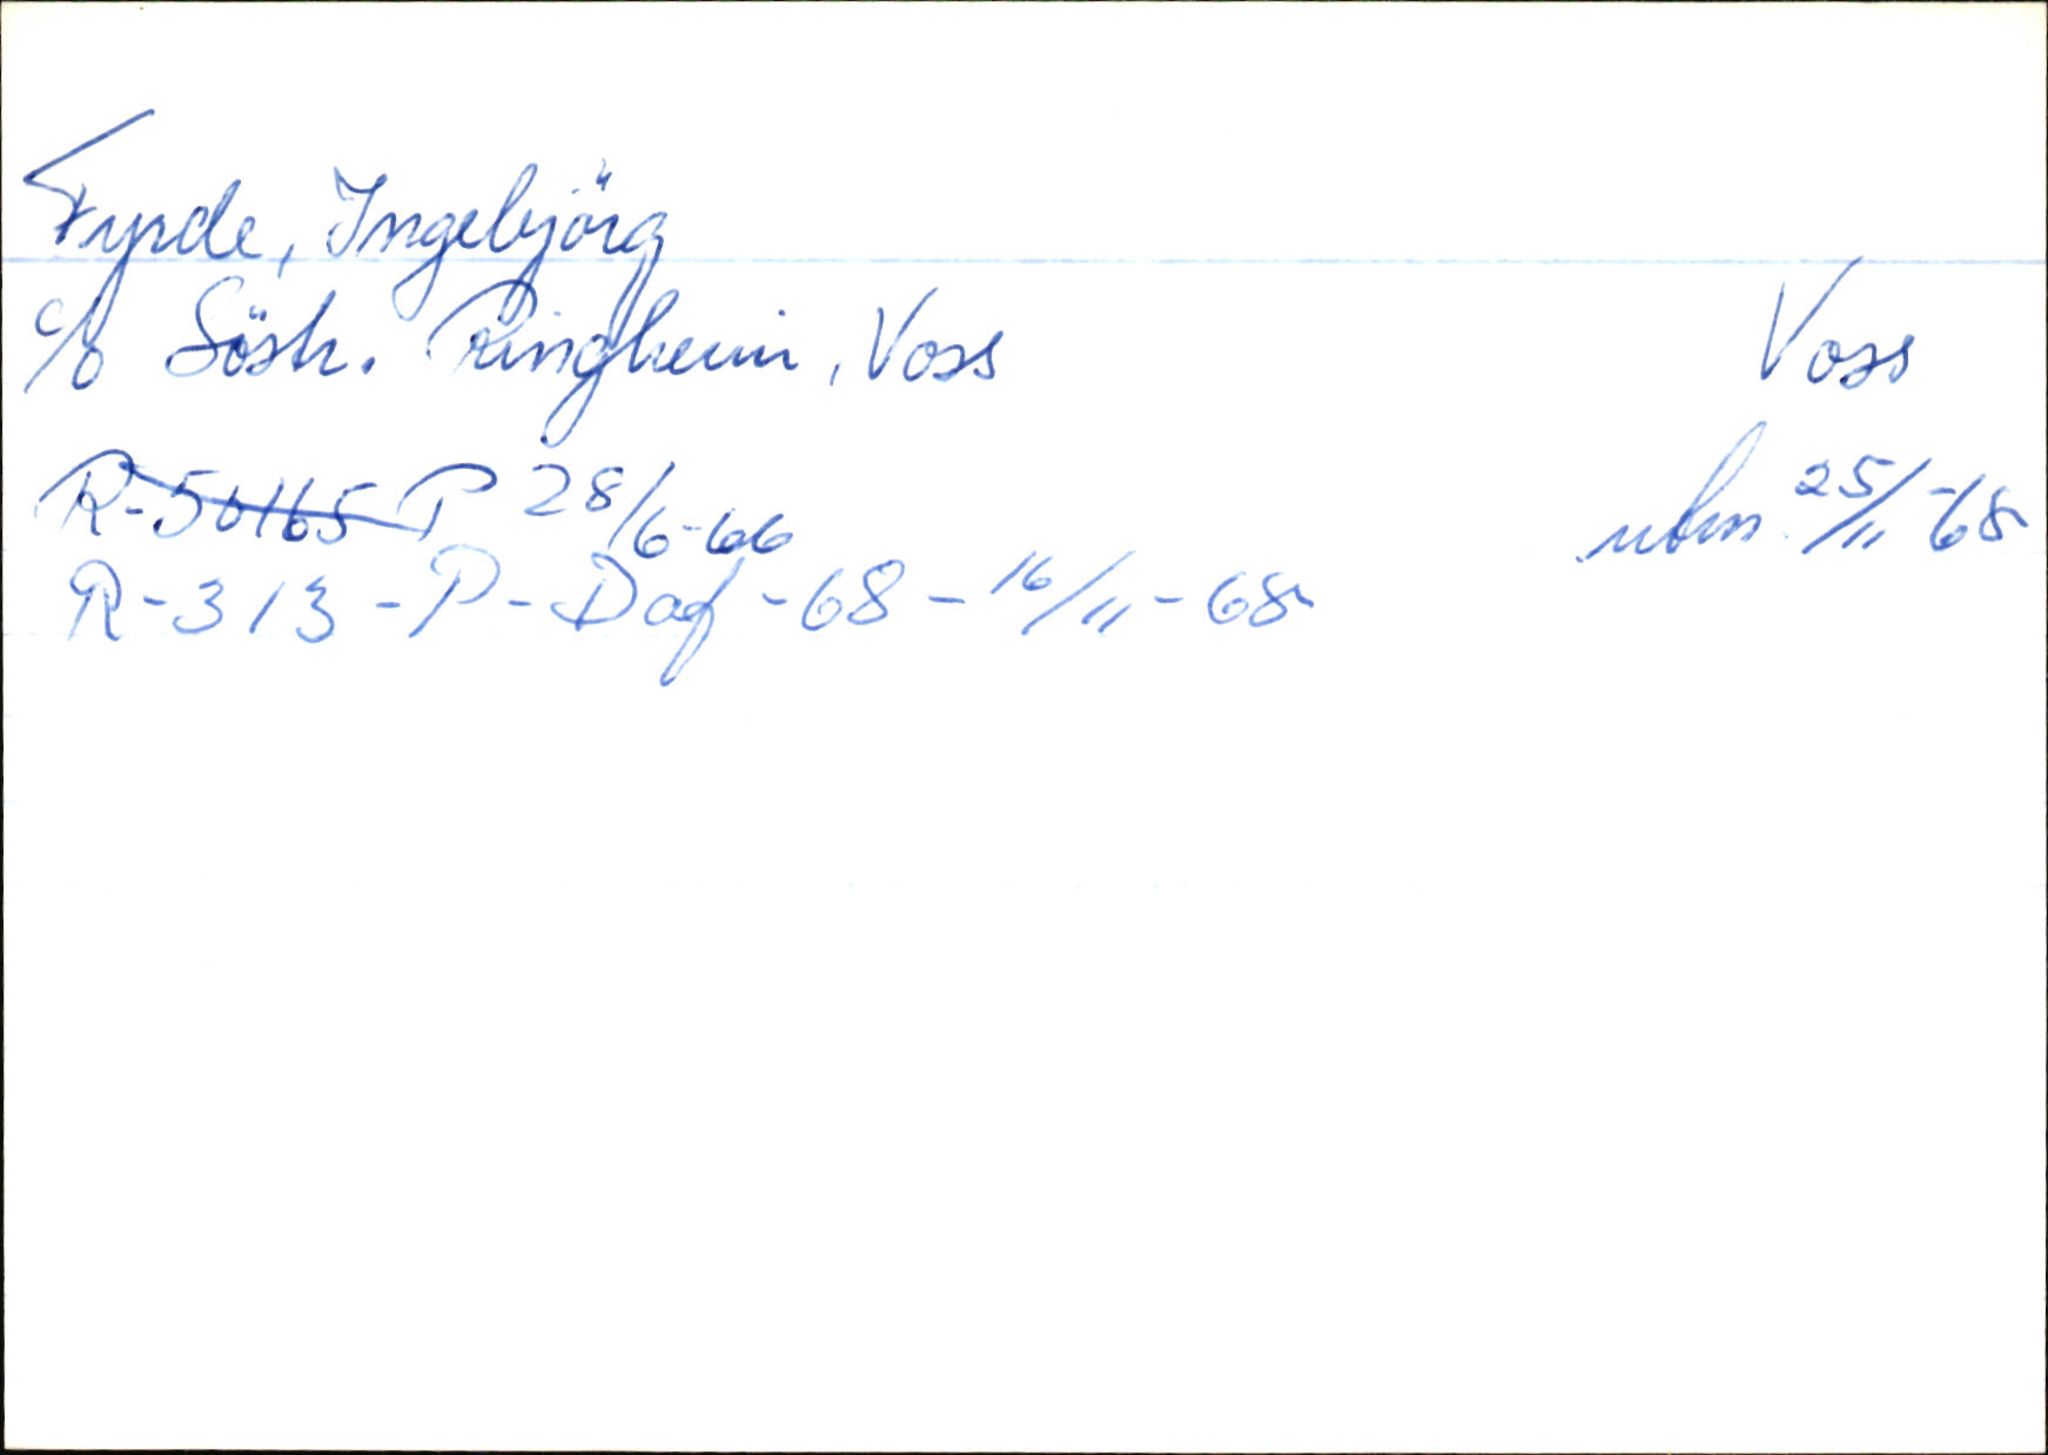 Fyrde, Ingebjörg
c/o Söstr. Ringheim, Voss Voss
R-50165 P 28/6-66 utm. 25/11-68
R-313-P-Daf-68-16/11-68